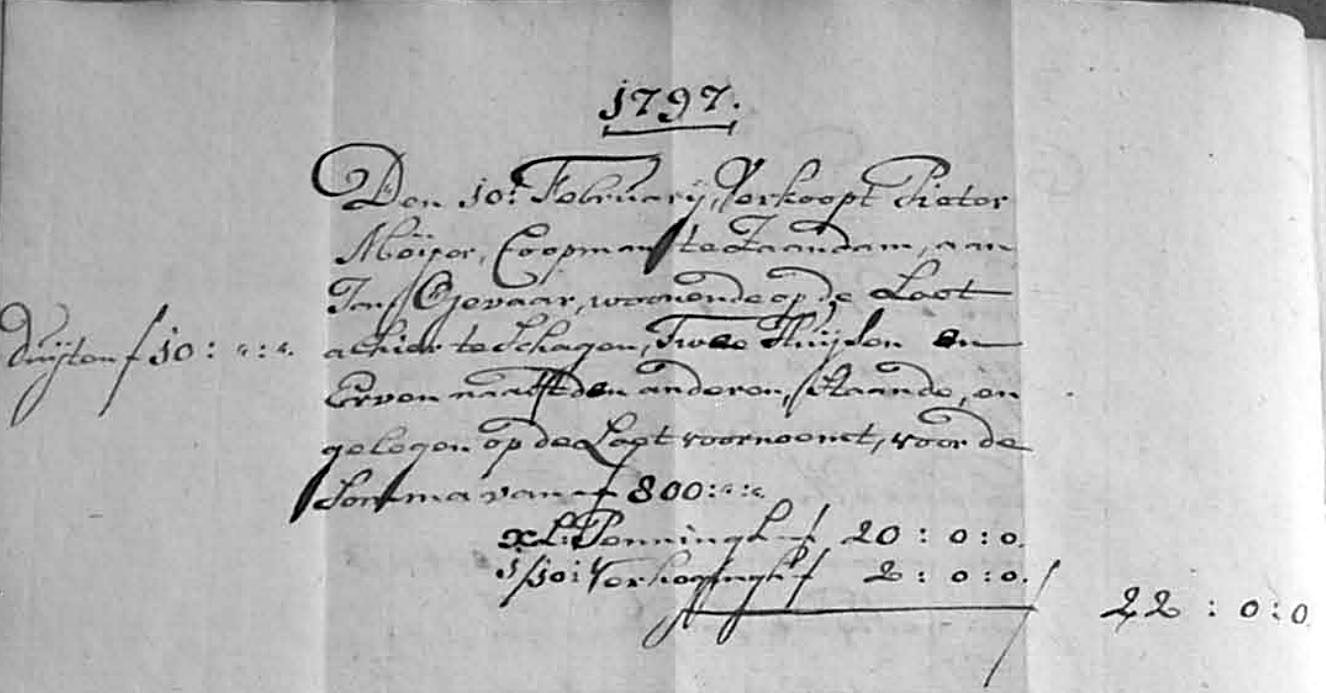 1797.
Den 10: February, Verkoopt Pieter
Meijer, Coopman te Zaandam, aan
Jan Gevaar, woonende op de Loet
Duijten f 10 : ":". achter te Schagen, Twee Huijsen en
Erven naast den anderen, staande, en
gelegen op de Loet voornoemt, voor de
Somma van f 800:":".
xL: Penningh f 20 : 0 : 0.
1/10: Verhoginge f 2 : 0 : 0.
22 : 0 : 0